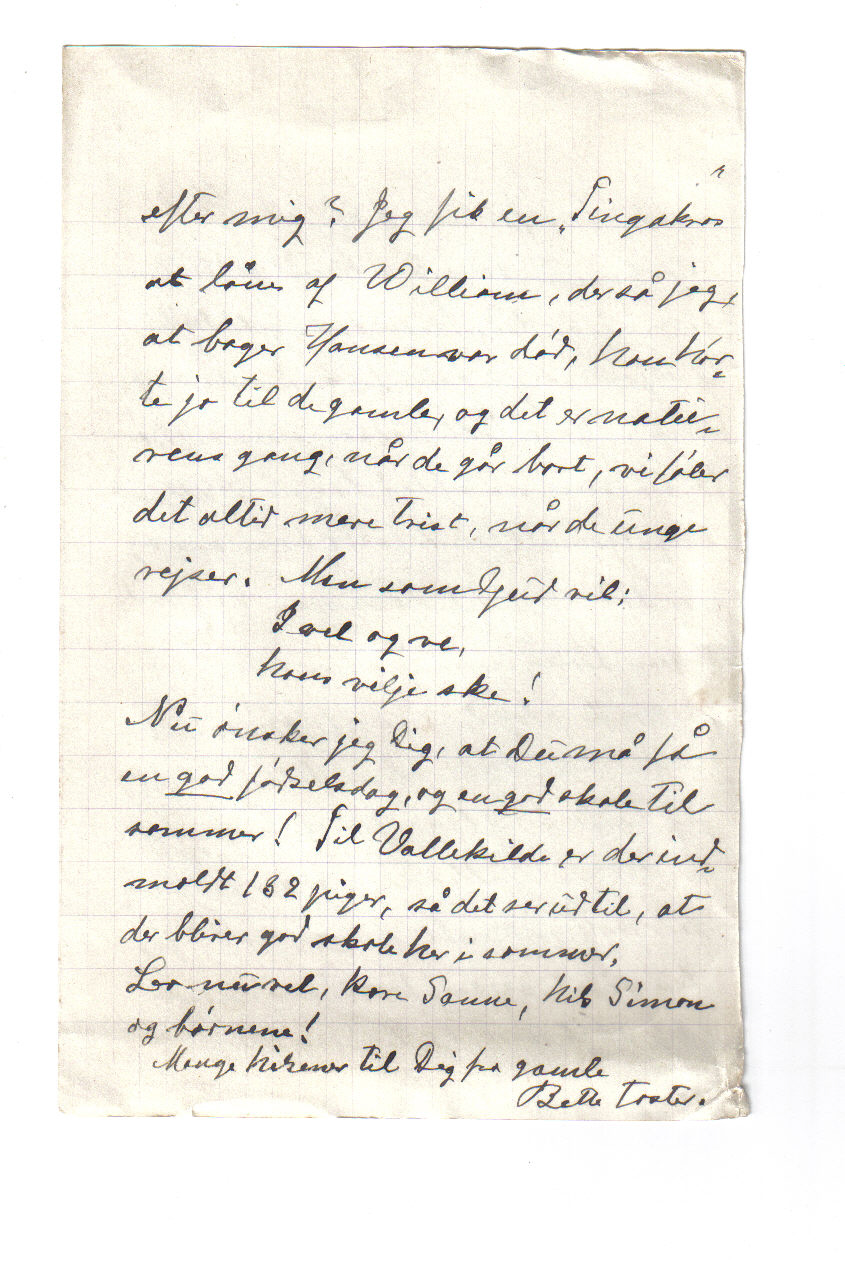 efter mig? Jeg fik en „Tingakros"
at låne af William, der så jeg,
at bager Hansen var død, han hør-
te jo til de gamle, og det er natu-
rens gang, når de går bort, vi føler
det altid mere trist, når de unge
rejser. Men som Gud vil:
I vel og ve,
hans vilje ske!
Nu ønsker jeg Dig, at Du må få
en god fødselsdag, og en god skole til
sommer! Til Vallekilde er der ind-
meldt 132 piger, så det ser ud til, at
der bliver god skole her i sommer.
Lev nu vel, kære Sanne, hils Simon
og børnene!
Mange hilsener til Dig fra gamle
Bette Faster.